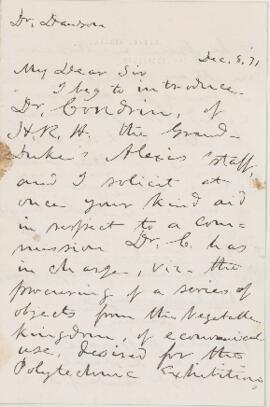 Dr. Dawson
Dec. 8, 71
My Dear Sir
I beg to introduce
Dr. Coudrin, of
H.R.H. the Grand-
Duke's Alexis' staff
and I solicit at
once your kind aid
in respect to a com-
mission Dr. C. has
in charge, viz. the
procuring of a series of
objects from the Vegetable
kingdom, of economical
use, desired for the
Polytechnic Exhibition,